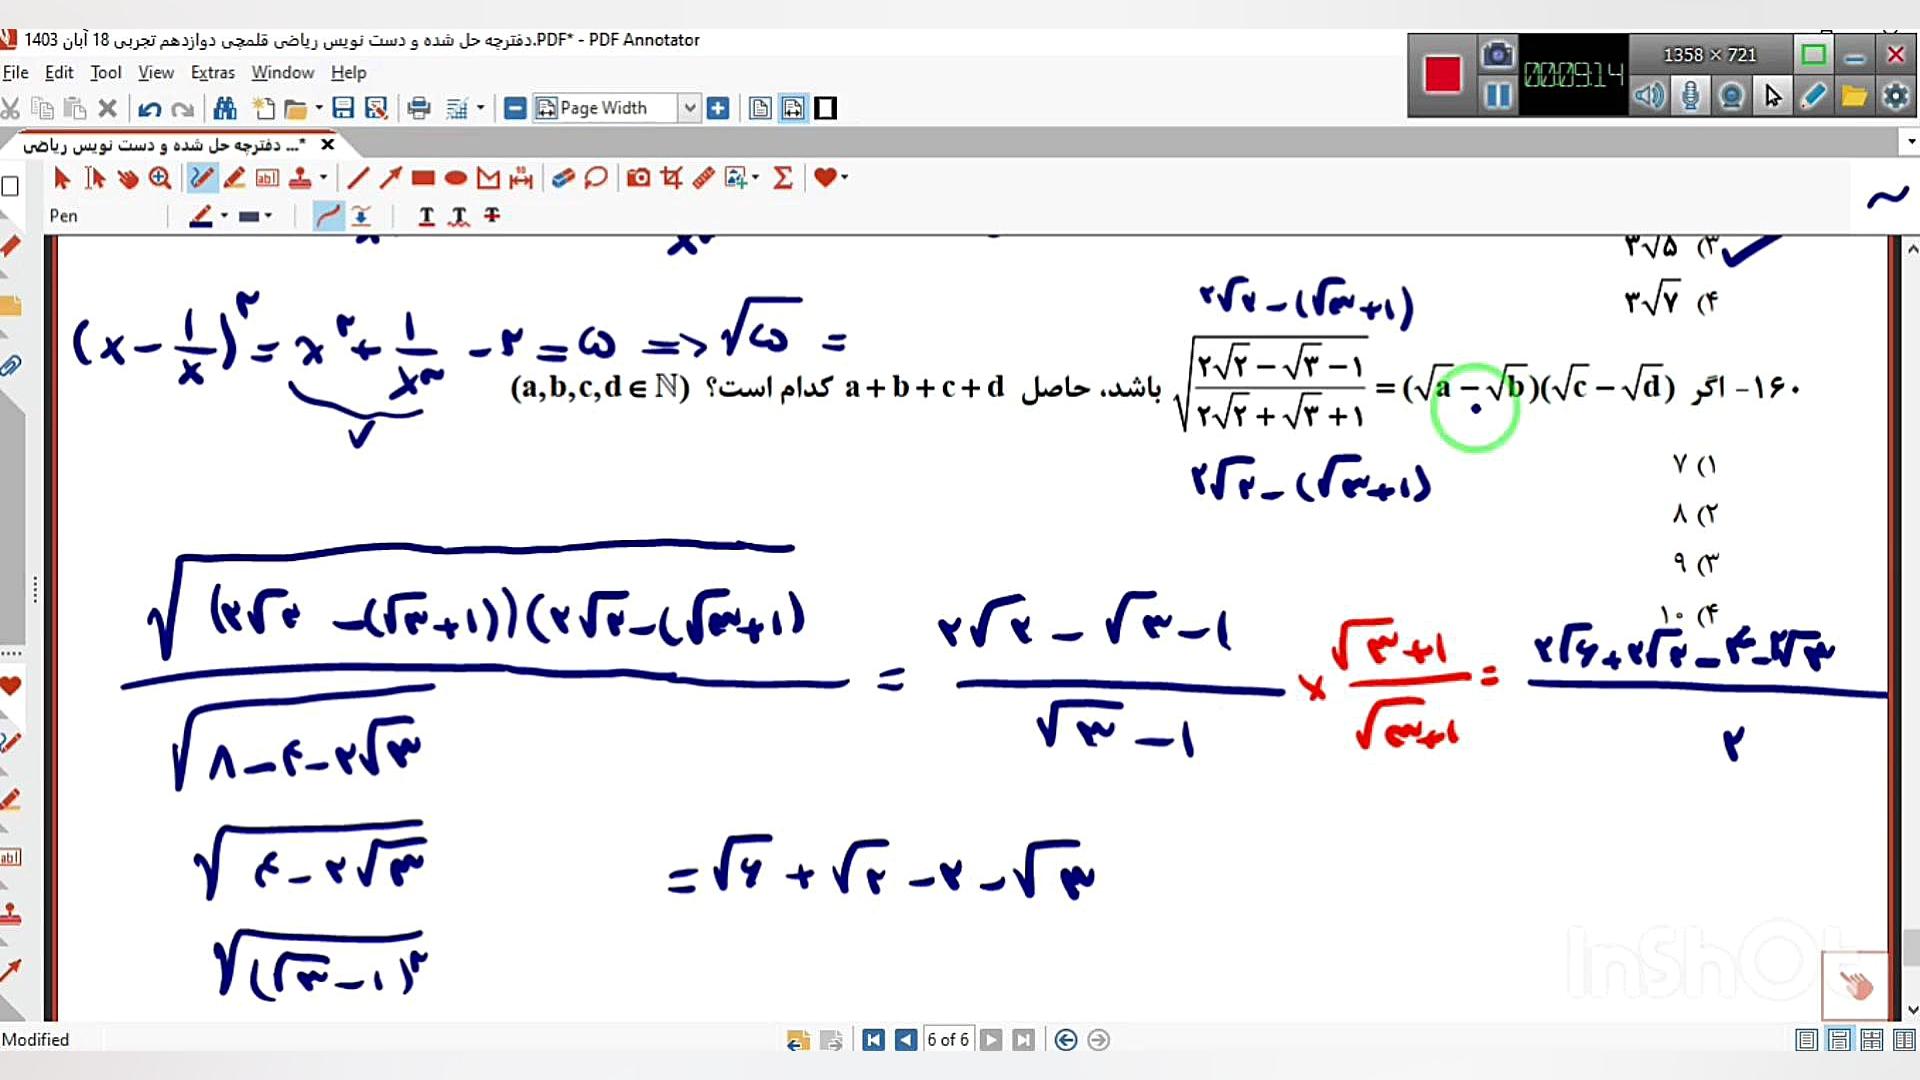 دفترچه حل شده و دست نویس ریاضی قلمچی دوازدهم تجربی 18 آبان 1403.PDF* - PDF Annotator
1358 × 721
00:09:14
File Edit Tool View Extras Window Help
Page Width
... دفترچه حل شده و دست نویس ریاضی*
Pen
۳) ۳√۵
۴) ۳√۷
(x - 1/x)^۲ = x^۲ + 1/x^۲ - ۲ = ۵ => √۵ =
۲√۲ - (√۳+۱)
۱۶۰- اگر √((۲√۲ - √۳ - ۱)/(۲√۲ + √۳ + ۱)) = (√a - √b)(√c - √d) باشد، حاصل a + b + c + d کدام است؟ (a,b,c,d ∈ ℕ)
۲√۲ - (√۳+۱)
۱) ۷
۲) ۸
۳) ۹
۴) ۱۰
√((۲√۲ - (√۳+۱))(۲√۲ - (√۳+۱))) / √(۸ - ۴ - ۲√۳) = (۲√۲ - √۳ - ۱)/(√۳ - ۱) × (√۳+۱)/(√۳+۱) = (۲√۶ + ۲√۲ - ۴ - ۲√۳)/۲
√(۴ - ۲√۳)
= √۶ + √۲ - ۲ - √۳
√((√۳ - ۱)^۲)
InShOt
Modified
6 of 6